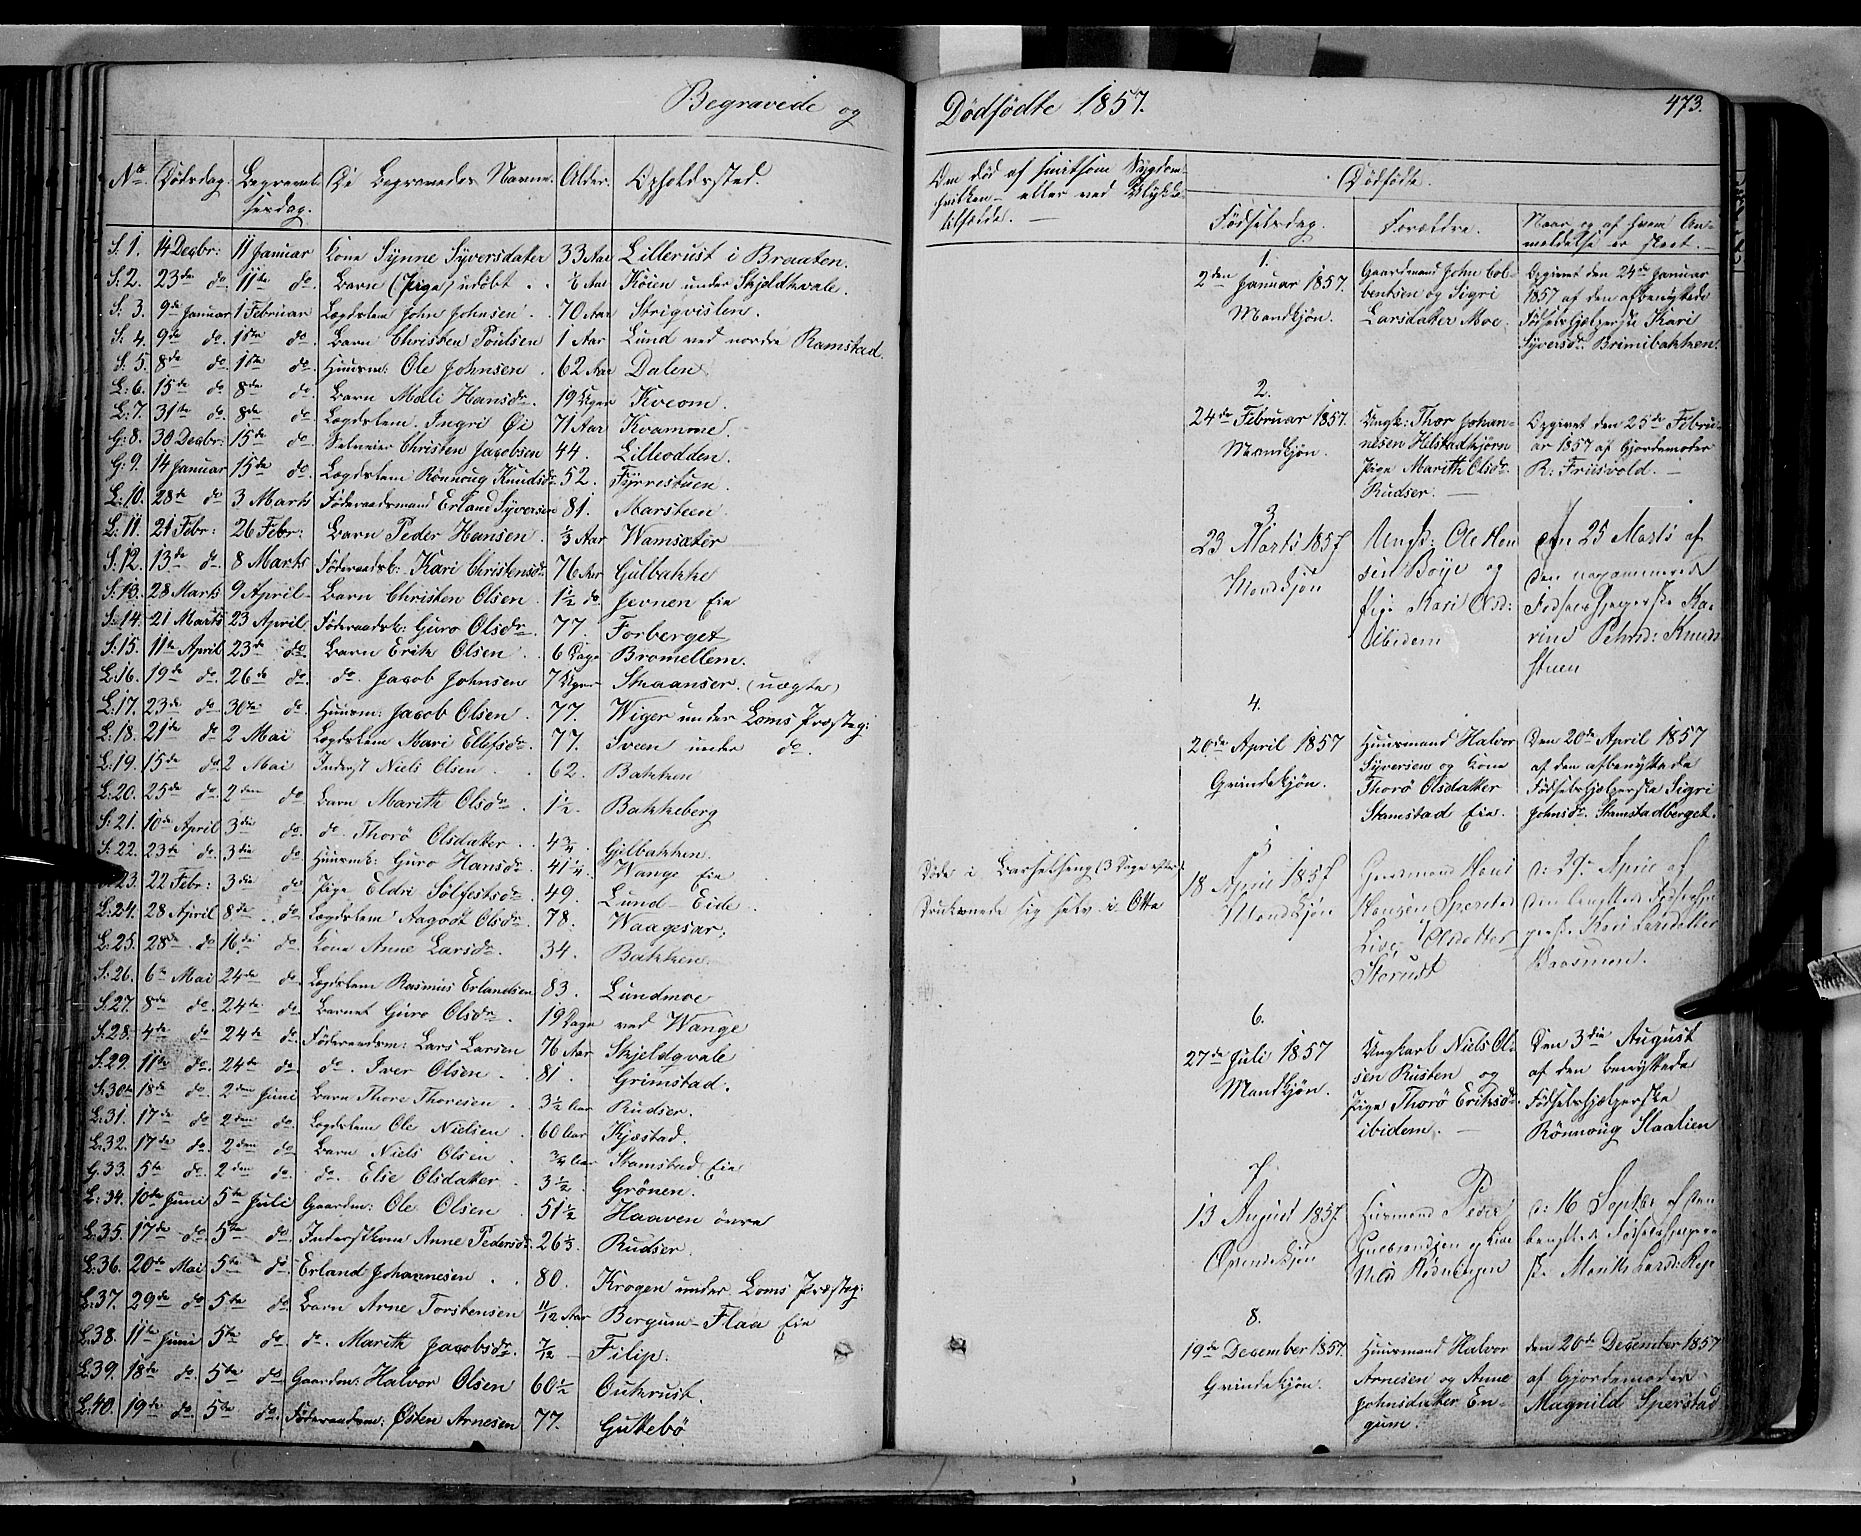 Begravede og
No. Dödsdag. Begravelsesdag. De Begravedes Navne. Alder. Opholdssted.
S. 1. 14 Decbr: 11 Januar Kone Synne Syversdatter 33 Aar Lillerust i Braaten.
S. 2. 23de do. 11te do. Barn (Pige) udöbt Köien under Skjeldkvale.
S. 3. 9de Januar 1 Februar Lægdslem John Johnsen. 70 Aar Strigvislen.
S. 4. 9de do. 1ste do. Barn Christen Poulsen 1 Aar Lund ved nordre Ramstad.
S. 5. 8de do. 1ste do. Huusm: Ole Johnsen. 62 Aar Dalen.
L. 6. 15de do. 8de do. Barn Mali Hansdr. 19 Uger Kveom.
L. 7. 31te do. 8de do. Lægdslem. Ingri Öi 71 Aar Kvamme.
G. 8. 30 Decbr: 15de do. Selveier Christen Jacobsen 44. Lilleodden.
G. 9. 14 Januar 15de do. Lægdslem Rönnoug Knudsdr. 52. Fyrrestuen.
L. 10. 28de do. 3 Marts Föderaadsmand Erland Syversen 81. Marsteen.
L. 11. 21 Febr: 26 Febr: Barn Peder Hansen. 1/3 Aar Wamsæter
S. 12. 13de do. 8 Marts Föderaadsk: Kari Christensdr. 76 Aar Gulbakke
S. 13. 28 Marts 9 April Barn Christen Olsen. 1½ do Jevnen Eie
S: 14. 21 Marts 23 April Föderaadsk: Guro Olsdr. 77. Forberget
S: 15. 11te April 23de do Barn Erik Olsen. 6 Dage Bromellem.
L: 16. 19de do. 26de do. do. Jacob Johnsen 7 Uger Smaanser. (uægte)
L: 17. 23de do. 30te do. Huusm: Jacob Olsen. 77. Wiger under Loms Præsteg:
L. 18. 21de do 2 Mai Lægdslem Mari Ellefsdr. 77. Sveen under do.
L. 19. 15de do. 2 Mai Inderst Niels Olsen. 62. Bakken
L. 20. 25de do. 2den do Barn Marith Olsdr. 1½. Bakkeberg
S: 21. 10de April 3die do. do. Thorö Olsdatter. 4¾ Gjelbakken.
S. 22. 23de do. 3die do. Huusmk: Guro Hansdr. 41¼. Wange Eie
23. 22 Febr: 3die do Pige Eldri Sölfestsdr. 49. Lund-Eide
L. 24. 28 April 8de. do Lægdslem Aagodt Olsdr. 78. Waagesar.
L. 25. 28de do 16de do. Kone Anne Larsdr. 34. Bakken.
S: 26. 6te Mai 24de do. Lægdslem Rasmus Erlandsen 83. Lundmoe
S. 27. 8de do. 24de do. Barnet Guro Olsdr. 19 Dage ved Wange
S. 28. 4de do. 24de do. Föderaadsm: Lars Larsen 76 Aar Skjeldqvale
S. 29. 11te do. 24de do. do. Iver Olsen. 81. Grimstad.
S. 30. 18de do. 2den Juni Barn Thore Thoresen. 3½ Aar Rudser.
L. 31. 17de do 2den do. Lægdslem Ole Nielsen. 60 Aar Kjæstad.
L. 32. 17de do. 2den do Barn Niels Olsen. ¾ Aar Stamstad Eie
G. 33. 5te do. 2den do. do. Else Olsdatter. 3½ Grönen.
L. 34. 10de Juni 5te Juli Gaardm: Ole Olsen 51½ Haaven övre
L. 35. 17de do 5te do. Inderstkone Anne Pedersdr. 26⅓ Rudser.
L. 36. 20de Mai 5te do. Erland Johannesen. 80. Krogen under Loms Præsteg:
L. 37. 29de do 5te do. Barn Arne Torstensen 11/12 Aar Bergum-Flaa Eie
L. 38. 11te Juni 5te do do. Marith Jacobsdr. 7/12 Filip.
L. 39. 18de do. 5te do Gaardm: Halvor Olsen 60½ Oukrust.
L. 40. 19de do. 5te do. Föderaadsm: Østen Arnesen 77. Guttebö
Dödfödte 1857.
473.
Om död af smitsom Sygdom
hvilken- eller ved Ulykke-
tilfælde.
Döde i Barselseng (3 Dage efter)
Druknede sig selv i Otta
Dödfödte.
Födselsdag. Forældre. Naar og af hvem Anmeldelse er skeet.
1.
2den Januar 1857. Gaardmand John Col- Opgivet den 24de Januar
Mandkjön. bentsen og Sigri 1857 af den afbenyttede
Larsdatter Moe. Födselshjælperske Kari
Syversdr. Brimibakken.
2.
24de Februar 1857. Ungk: Thor Johan- Opgivet den 25de Febru-
Mandkjön. nesen Helstadkjörn ar 1857 af Gjordemoder
Pige Marith Olsdr. R. Friisvold.
Rudser.
3
23 Marts 1857 Ungk: Ole Han den 25 Marts af
Mandkjön sen Böye og den
Pige Kari Olsd: Födselshjelperske Ka-
ibidem rine Pehrsd: Knuds
stuen
4.
20de April 1857 Huusmand Halvor Den 20de April 1857
Qvindekjön. Syversen og Kone af den afbenyttede
Thorö Olsdatter Födselshjelperske Sigri
Stamstad Eie. Johnsdr. Stamstadberget.
5
18 April 1857 Huusmand Hans d: 29de April af
Mandkjön Hansen Sperstad den benyttede Födselshjel-
Live Olsdatter perske Kari Larsdatter
Storudt Baasmoen.
6.
27de Juli 1857 Ungkarl Niels Ol- Den 3die August
Mandkjön. sen Rusten og af den benyttede
Pige Thorö Eriksdr. Födselshjelperske
ibidem. Rönnoug Slaalien
7
13 August 1857. Huusmand Peder d: 16 Septbr af den
Qvindekjön Gulbrandsen og benyttede Födselshjelper-
Rödningen ske Marith Larsd:
8.
19de December 1857. Huusmand Halvor den 20de December 1857
Qvindekjön. Arnesen og Anne af Gjordemoder
Johnsdatter En- Magnild Sperstad
gum.